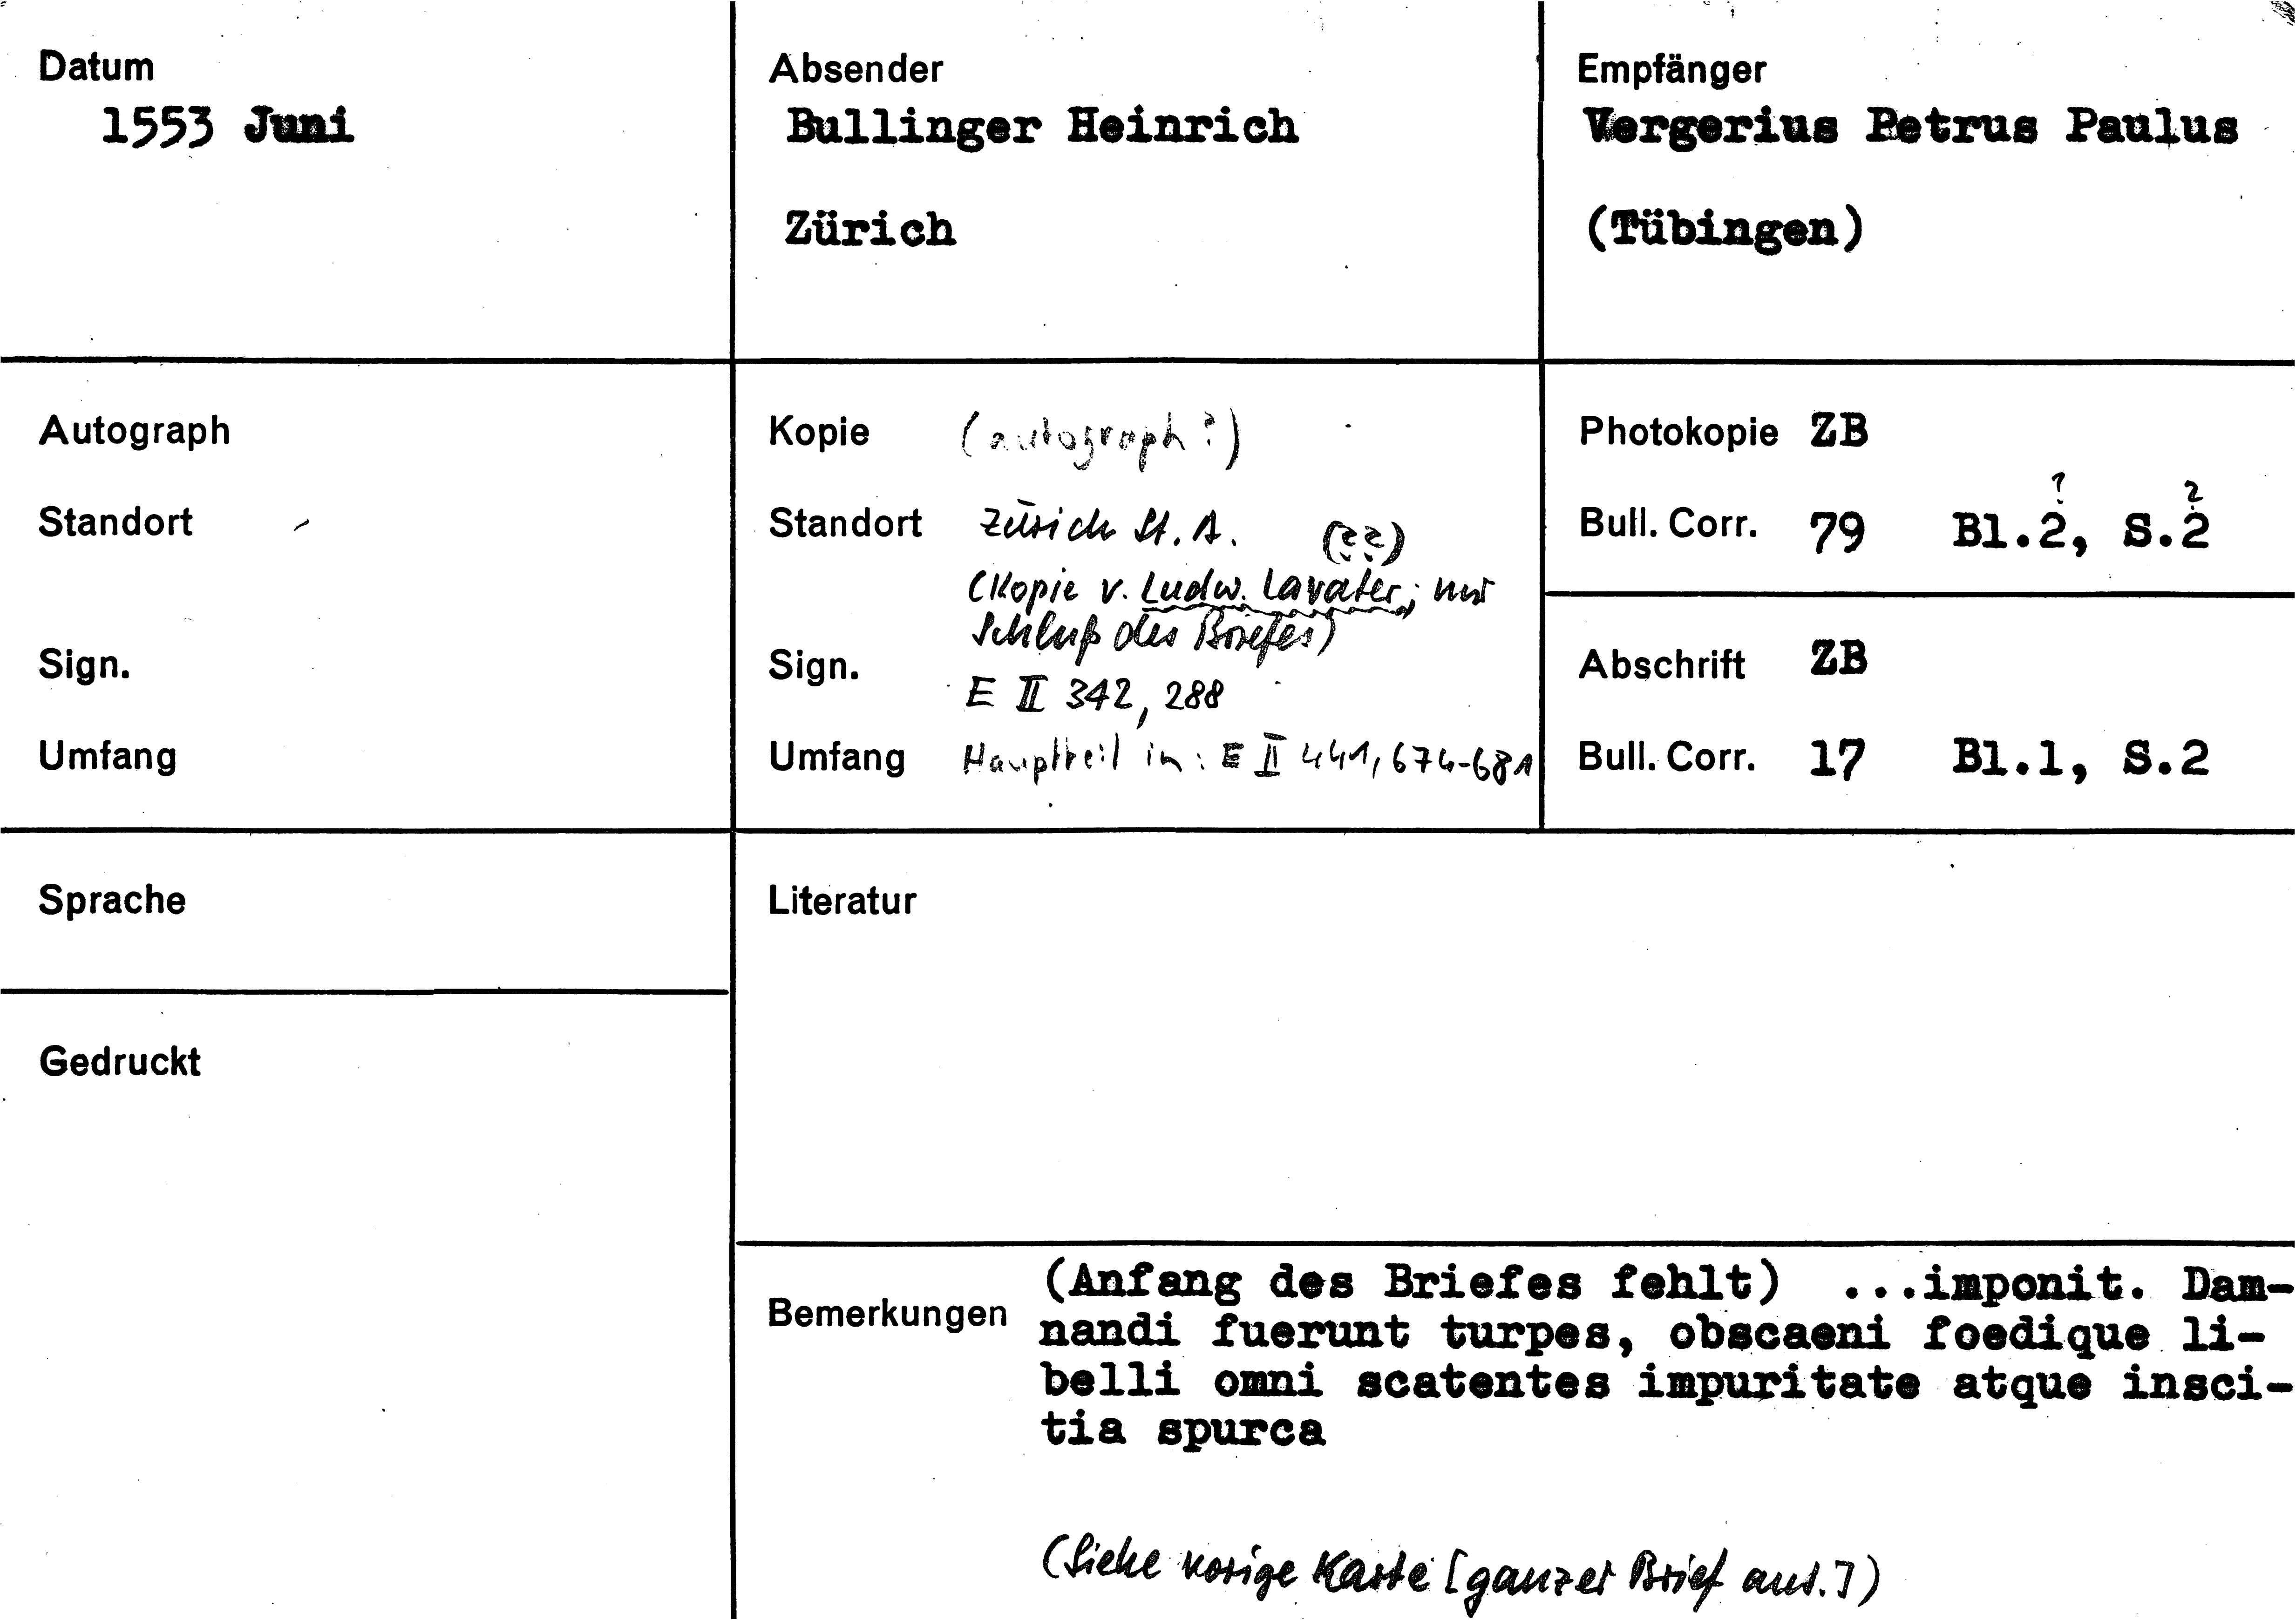 Datum
1553 Juni
Absender
Bullinger Heinrich
Zürich
Empfänger
Vergerius Petrus Paulus
(Tübingen)
Autograph
Standort
Sign.
Umfang
Kopie (autograph?)
Standort Zürich St. A. (??)
(Kopie v. Ludw. Lavater; nur
Schluß des Briefes)
Sign.
E II 342, 288
Umfang Hauptteil in: E II 441, 674-681
Photokopie ZB
? ?
Bull. Corr. 79 Bl.2, S.2
Abschrift ZB
Bull. Corr. 17 Bl.1, S.2
Sprache
Gedruckt
Literatur
Bemerkungen
(Anfang des Briefes fehlt) ...imponit. Dam-
nandi fuerunt turpes, obscaeni foedique li-
belli omni scatentes impuritate atque insci-
tia spurca
(Siehe vorige Karte [ganzer Brief aut.])